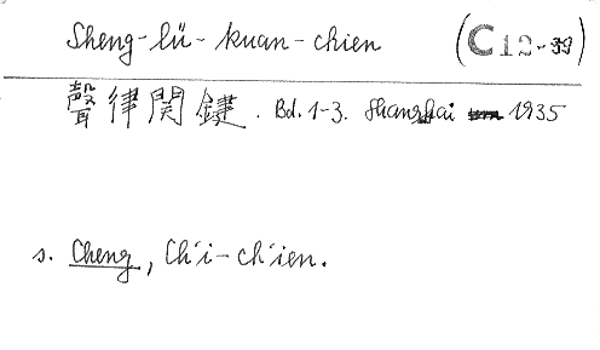 Sheng-lü-kuan-chien (C12-39)
聲律関鍵. Bd. 1-3. Shanghai 1935
s. Cheng, Ch'i-ch'ien.